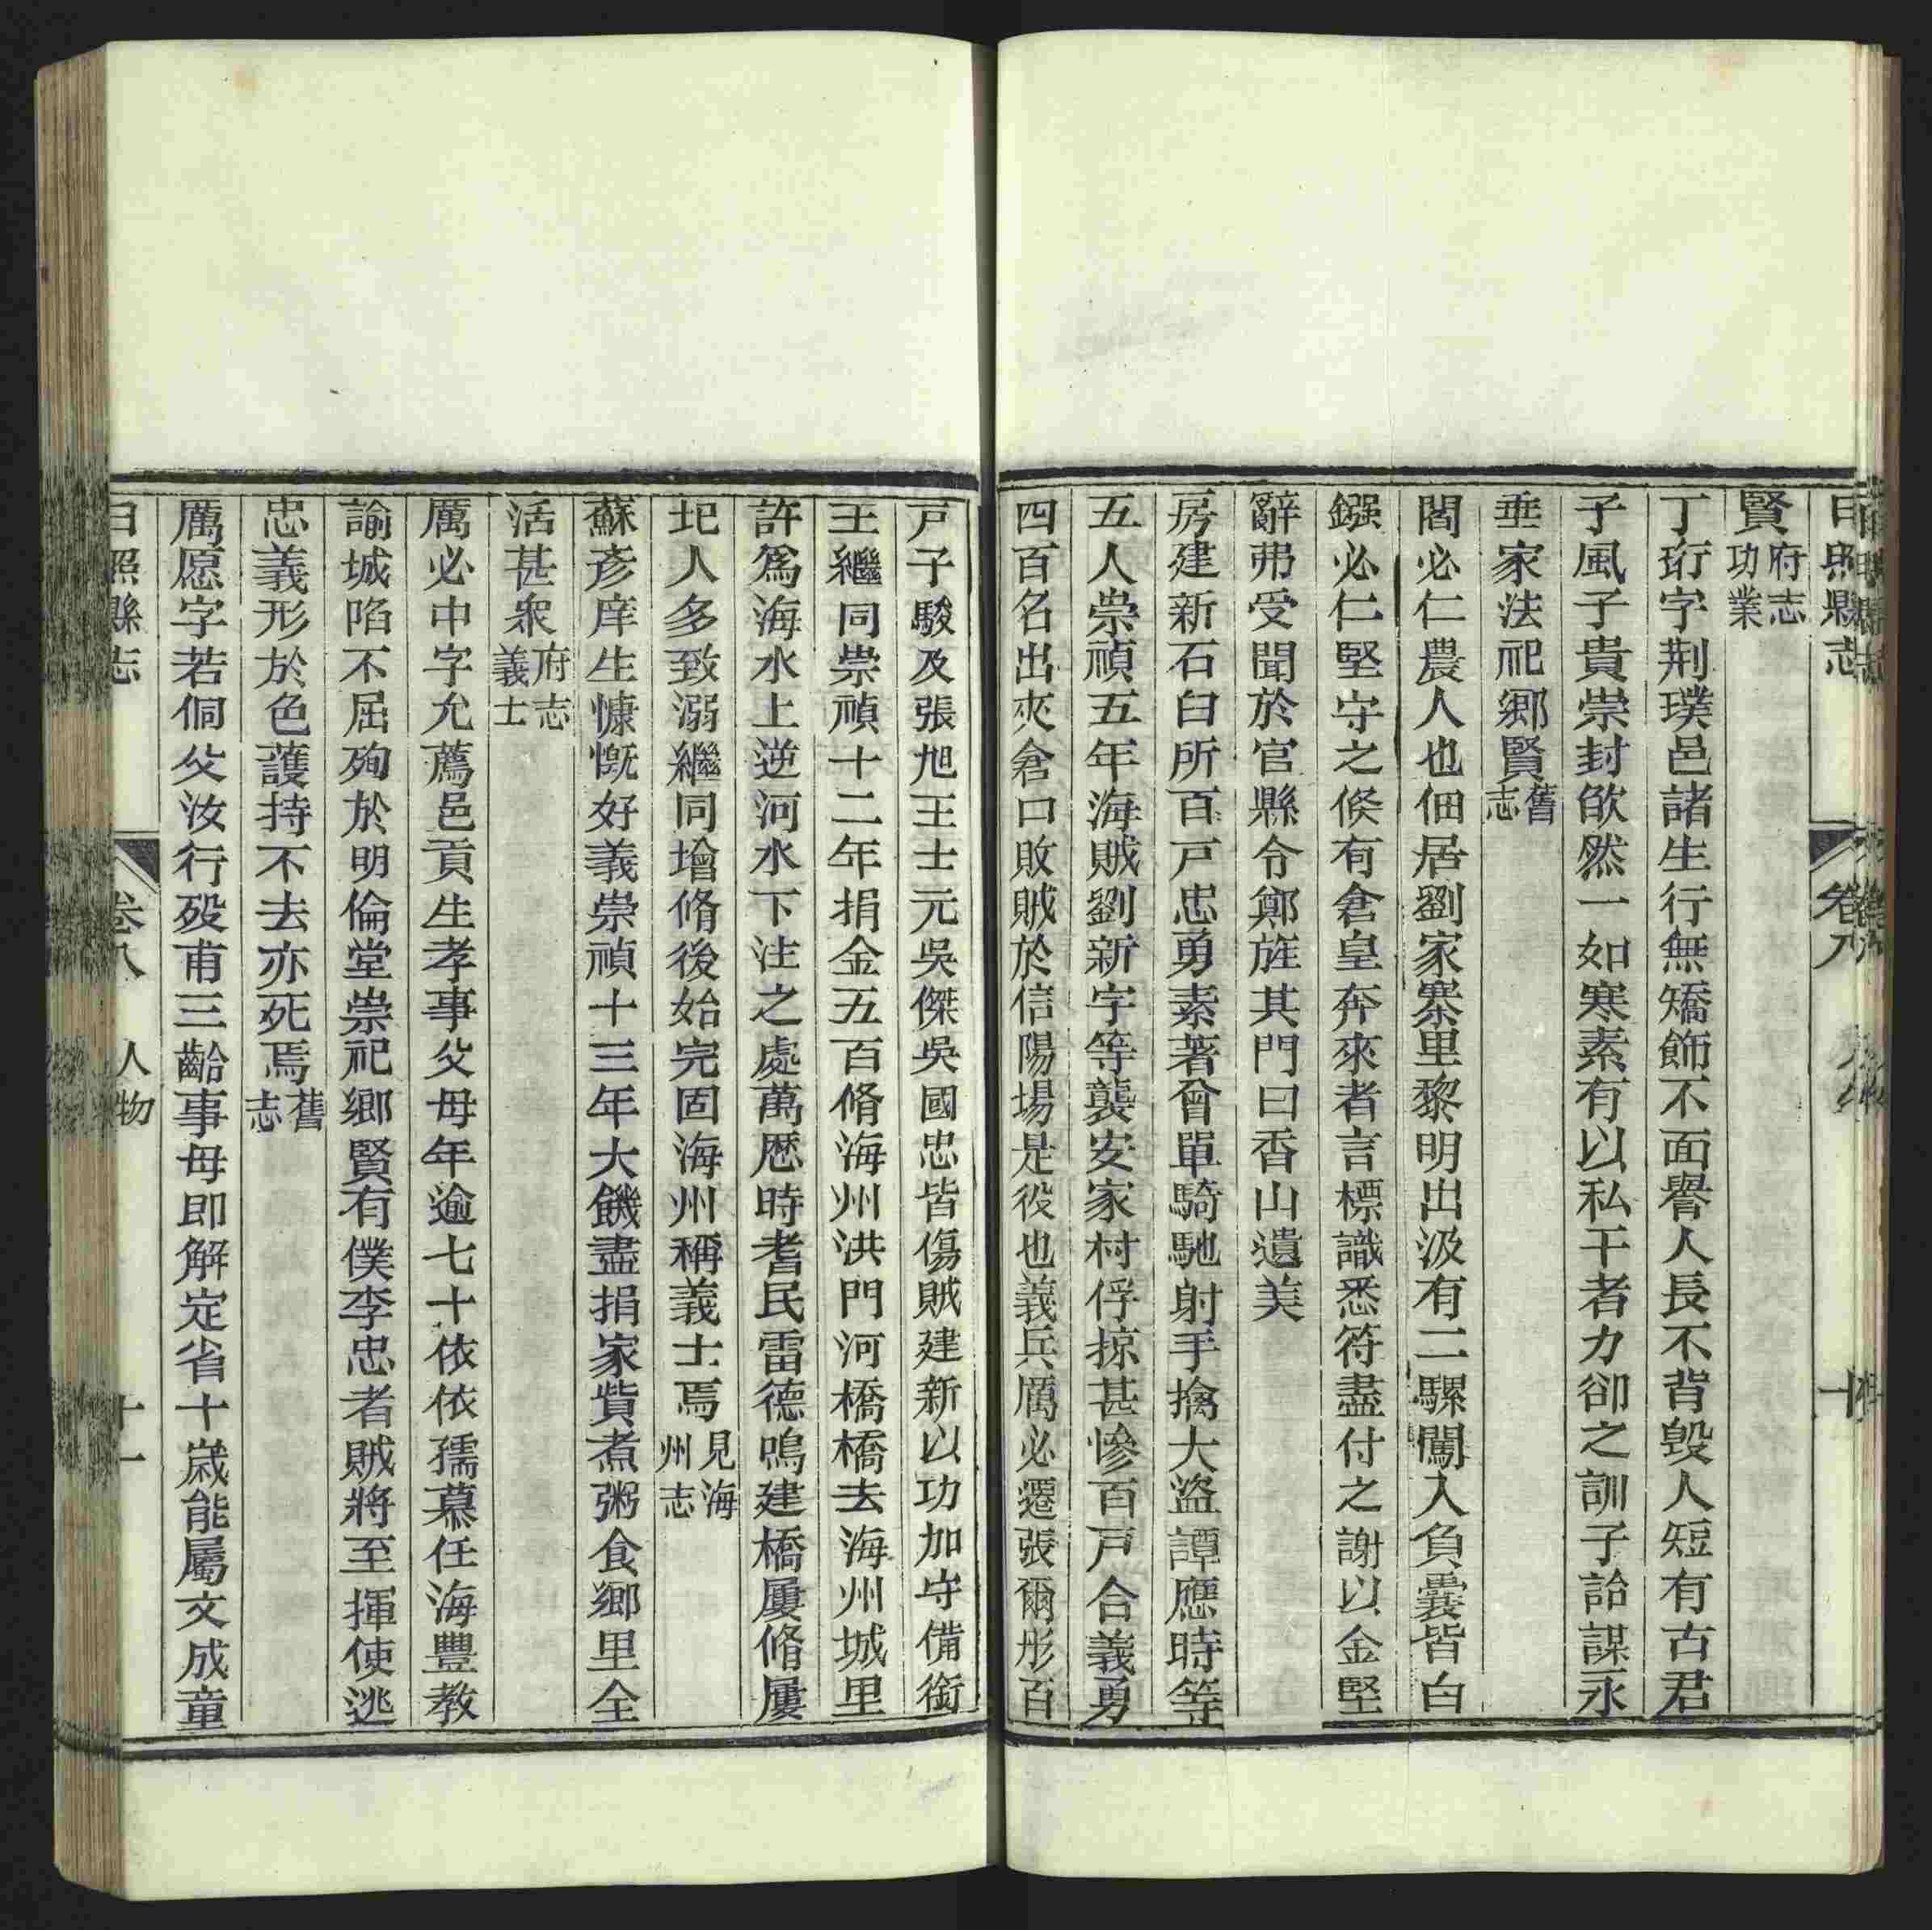 日照縣志 卷八 十
賢府志功業
丁珩字荆璞邑諸生行無矯飾不面譽人長不背毀人短有古君
子風子貴崇封欿然一如寒素有以私干者力卻之訓子詒謀永
垂家法祀鄉賢舊志
閻必仁農人也佃居劉家寨里黎明出汲有二騾闖入負囊皆白
鏹必仁堅守之倏有倉皇奔來者言標識悉符盡付之謝以金堅
辭弗受聞於官縣令鄭旌其門曰香山遺美
房建新石臼所百戸忠勇素著曾單騎馳射手擒大盜譚應時等
五人崇禎五年海賊劉新宇等襲安家村俘掠甚慘百戸合義勇
四百名出夾倉口敗賊於信陽場是役也義兵厲必遷張爾彤百
戸子駿及張旭王士元吳傑吳國忠皆傷賊建新以功加守備銜
王繼同崇禎十二年捐金五百脩海州洪門河橋橋去海州城里
許爲海水上逆河水下注之處萬歷時耆民雷德鳴建橋屢脩屢
圮人多致溺繼同增脩後始完固海州稱義士焉見海州志
蘇彥庠生慷慨好義崇禎十三年大饑盡捐家貲煮粥食鄉里全
活甚衆府志義士
厲必中字允薦邑貢生孝事父母年逾七十依依孺慕任海豐教
諭城陷不屈殉於明倫堂崇祀鄉賢有僕李忠者賊將至揮使逃
忠義形於色護持不去亦死焉舊志
厲愿字若侗父汝行歿甫三齡事母即解定省十歲能屬文成童
日照縣志 卷八 人物 十一